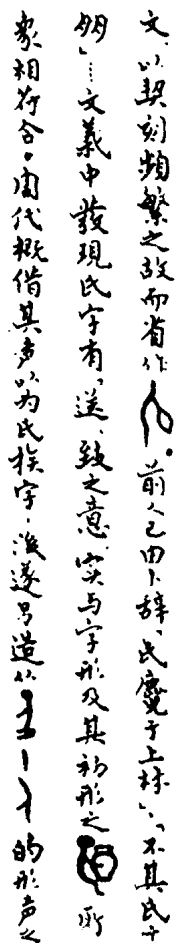 文，以契刻頻繁之故而省作。前人已由卜辭“氏麑于上林”、“不其氏十
”…文義中發現氏字有“送、致之意，实与字形及其初形之所
象相符合。周代概借其声以为氏族字，後遂另造从的形声之